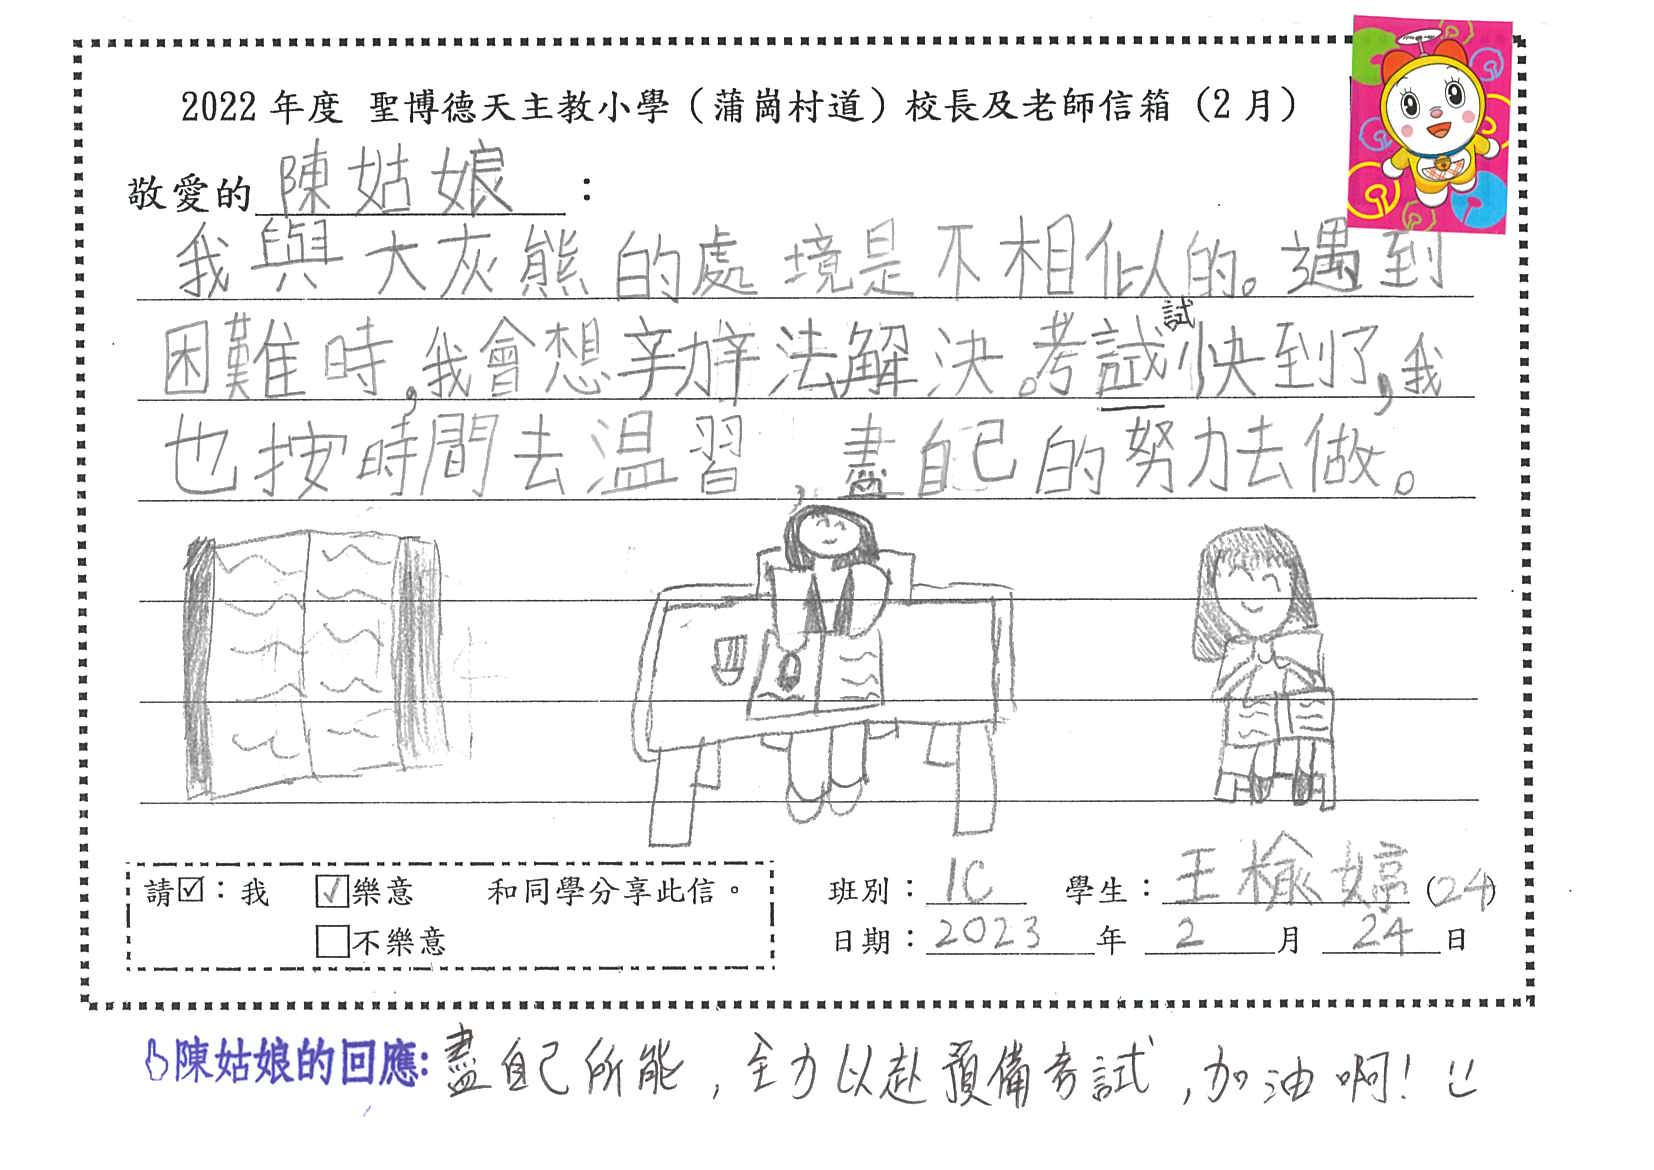 2022 年度 聖博德天主教小學（蒲崗村道）校長及老師信箱（2 月）
敬愛的陳姑娘：
我與大灰熊的處境是不相似的。遇到
試
困難時，我會想辦法解決。考試快到了，我
也按時間去温習，盡自己的努力去做。
請☑：我 ☑樂意 和同學分享此信。
□不樂意
班別：1C 學生：王榆婷（24）
日期：2023 年 2 月 24 日
陳姑娘的回應：盡自己所能，全力以赴預備考試，加油啊！